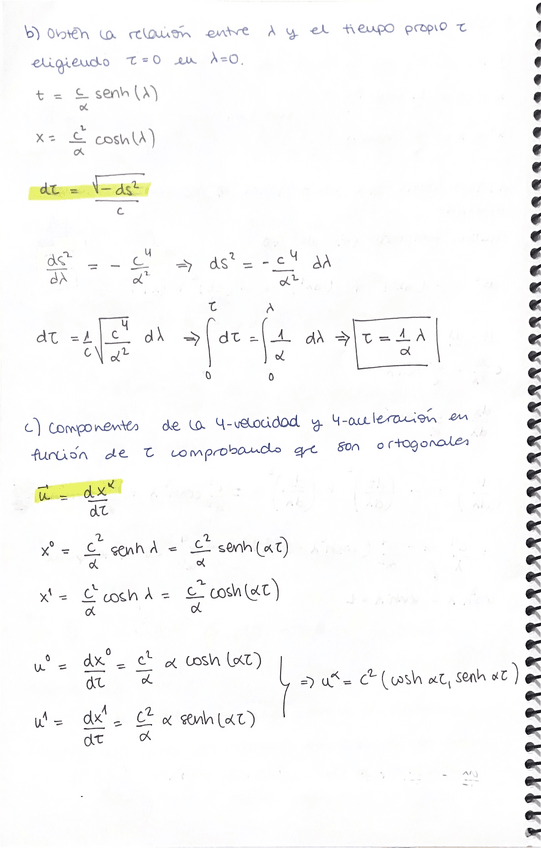 b) Obtén la relación entre λ y el tiempo propio τ
eligiendo τ=0 en λ=0.
t = c/α senh(λ)
x = c²/α cosh(λ)
dτ = √(-ds²)/c
ds²/dλ = - c⁴/α² ⇒ ds² = - c⁴/α² dλ
dτ = 1/c √(c⁴/α²) dλ ⇒ ∫₀^τ dτ = ∫₀^λ 1/α dλ ⇒ τ = 1/α λ
c) Componentes de la 4-velocidad y 4-aceleración en
función de τ comprobando qe son ortogonales
u⃗ = dx^α/dτ
x⁰ = c²/α senh λ = c²/α senh(ατ)
x¹ = c²/α cosh λ = c²/α cosh(ατ)
u⁰ = dx⁰/dτ = c²/α α cosh(ατ)
⇒ u^α = c²(cosh ατ, senh ατ)
u¹ = dx¹/dτ = c²/α α senh(ατ)